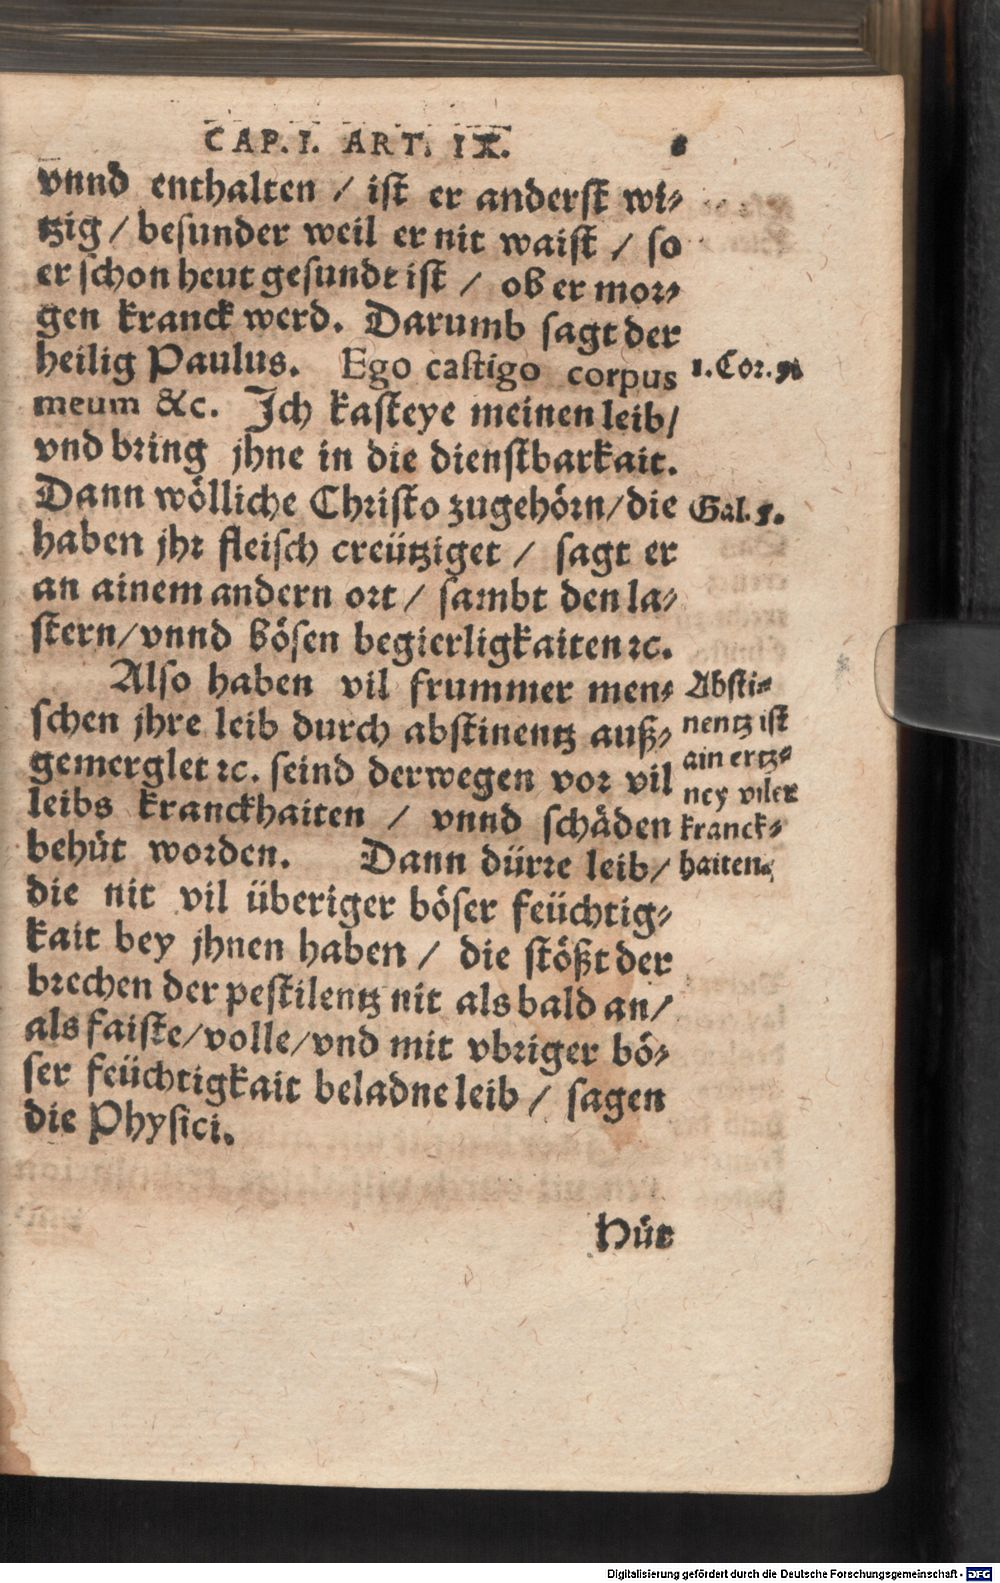 CAP. I. ART. IX. 8
vnnd enthalten / ist er anderst wi⸗
tzig / besunder weil er nit waist / so
er schon heut gesundt ist / ob er mor⸗
gen kranck werd. Darumb sagt der
heilig Paulus. Ego castigo corpus
1. Cor. 9.
meum &c. Ich kasteye meinen leib /
vnd bring jhne in die dienstbarkait.
Dann wölliche Christo zugehörn / die
Gal. 5.
haben jhr fleisch creütziget / sagt er
an ainem andern ort / sambt den la⸗
stern / vnnd bösen begierligkaiten ꝛc.
Also haben vil frummer men⸗
schen jhre leib durch abstinentz auß⸗
gemerglet ꝛc. seind derwegen vor vil
leibs kranckhaiten / vnnd schäden
behüt worden. Dann dürre leib /
Absti⸗
nentz ist
ain ertz⸗
ney viler
kranck⸗
haiten.
die nit vil überiger böser feüchtig⸗
kait bey jhnen haben / die stößt der
brechen der pestilentz nit als bald an /
als faiste / volle / vnd mit vbriger bö⸗
ser feüchtigkait beladne leib / sagen
die Physici.
Hüt
Digitalisierung gefördert durch die Deutsche Forschungsgemeinschaft - DFG